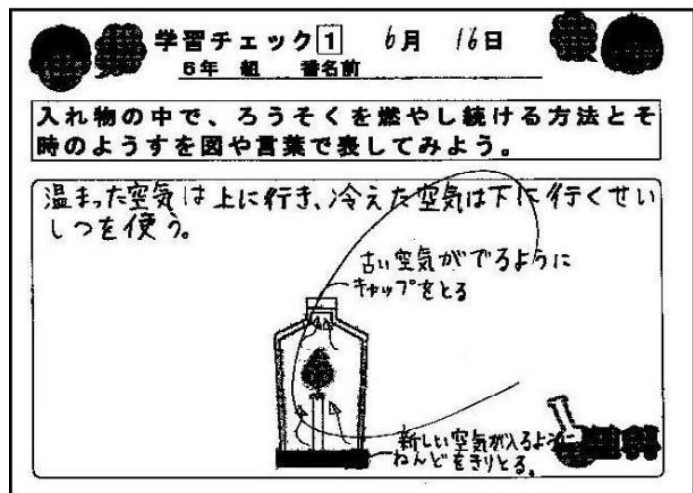 学習チェック1 6月 16日
6年 組 番名前
入れ物の中で、ろうそくを燃やし続ける方法とそ
時のようすを図や言葉で表してみよう。
温まった空気は上に行き、冷えた空気は下に行くせい
しつを使う。
古い空気がでるように
キャップをとる
新しい空気が入るように
ねんどをきりとる。
理科